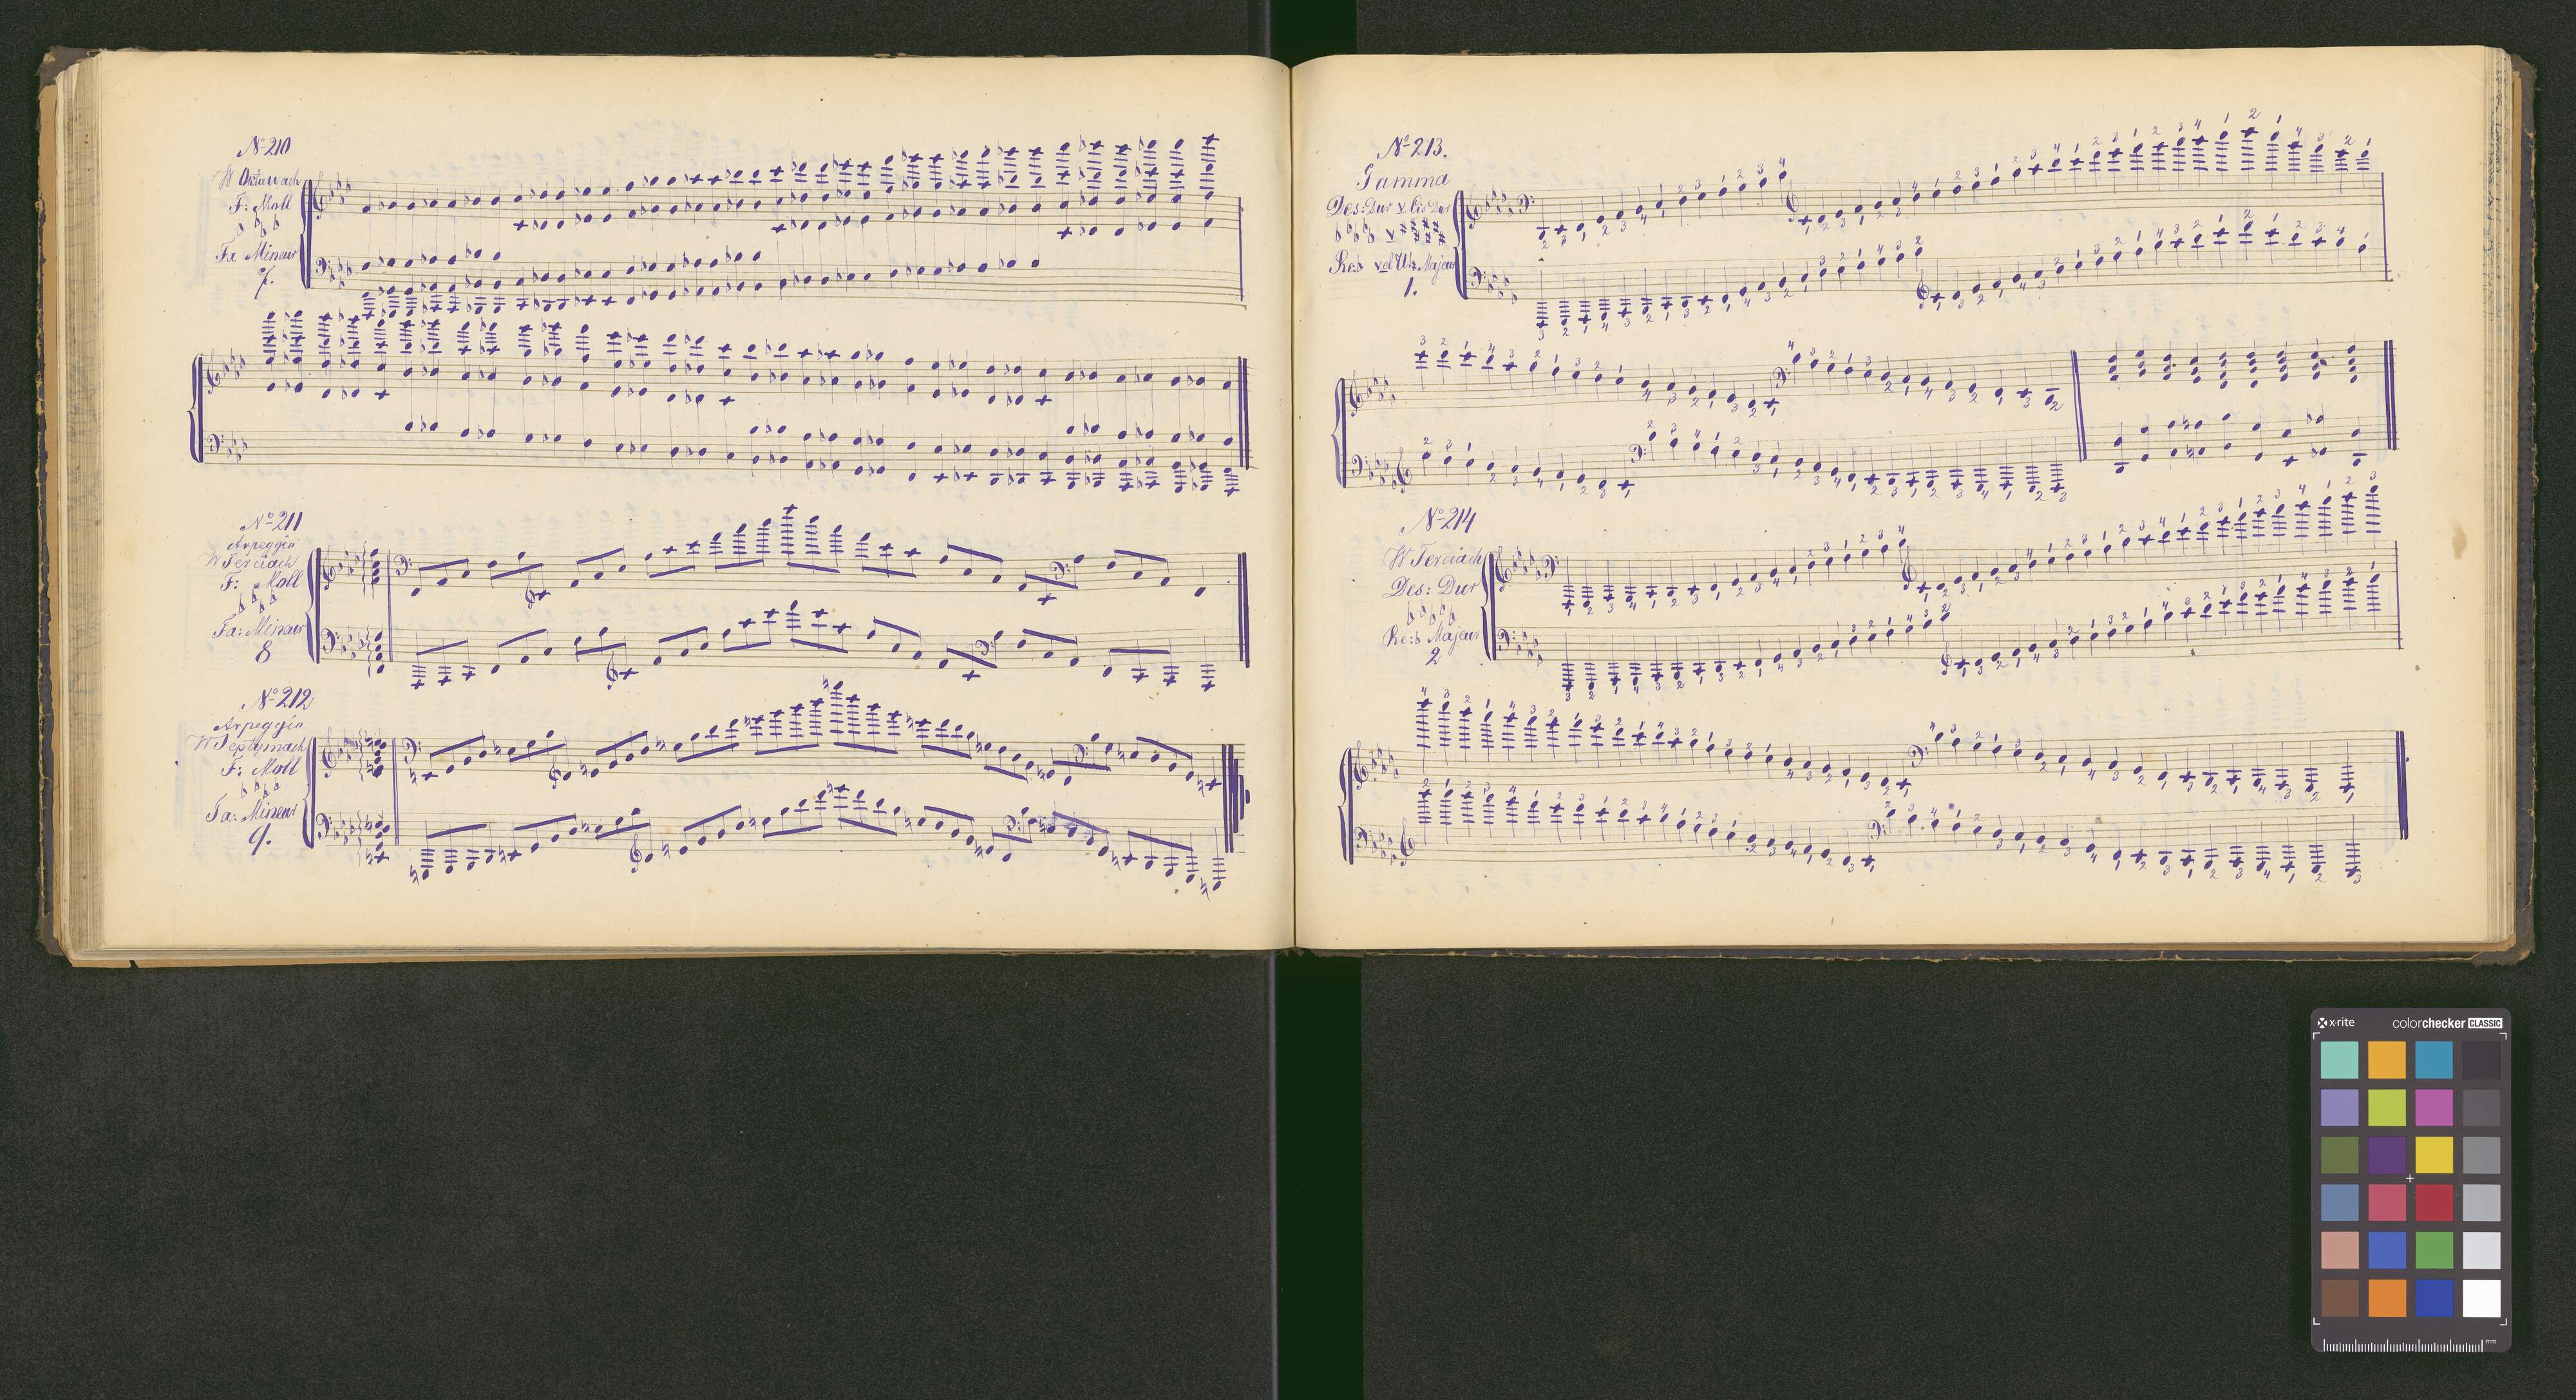 № 210
W Oktawach
F: Moll
♭ ♭ ♭ ♭
Fa Mineur
7.
№ 211
Arpeggio
W Terciach
F: Moll
♭ ♭ ♭ ♭
Fa: Mineur
8
№ 212
Arpeggio
W Septymach
F: Moll
♭ ♭ ♭ ♭
Fa: Mineur
9.
№ 213.
Gamma
Des: Dur v Cis Dur
Re:b vel Ut# Majeur
1.
№ 214
W Terciach
Des: Dur
Re:b Majeur
2
x-rite colorchecker CLASSIC
mm